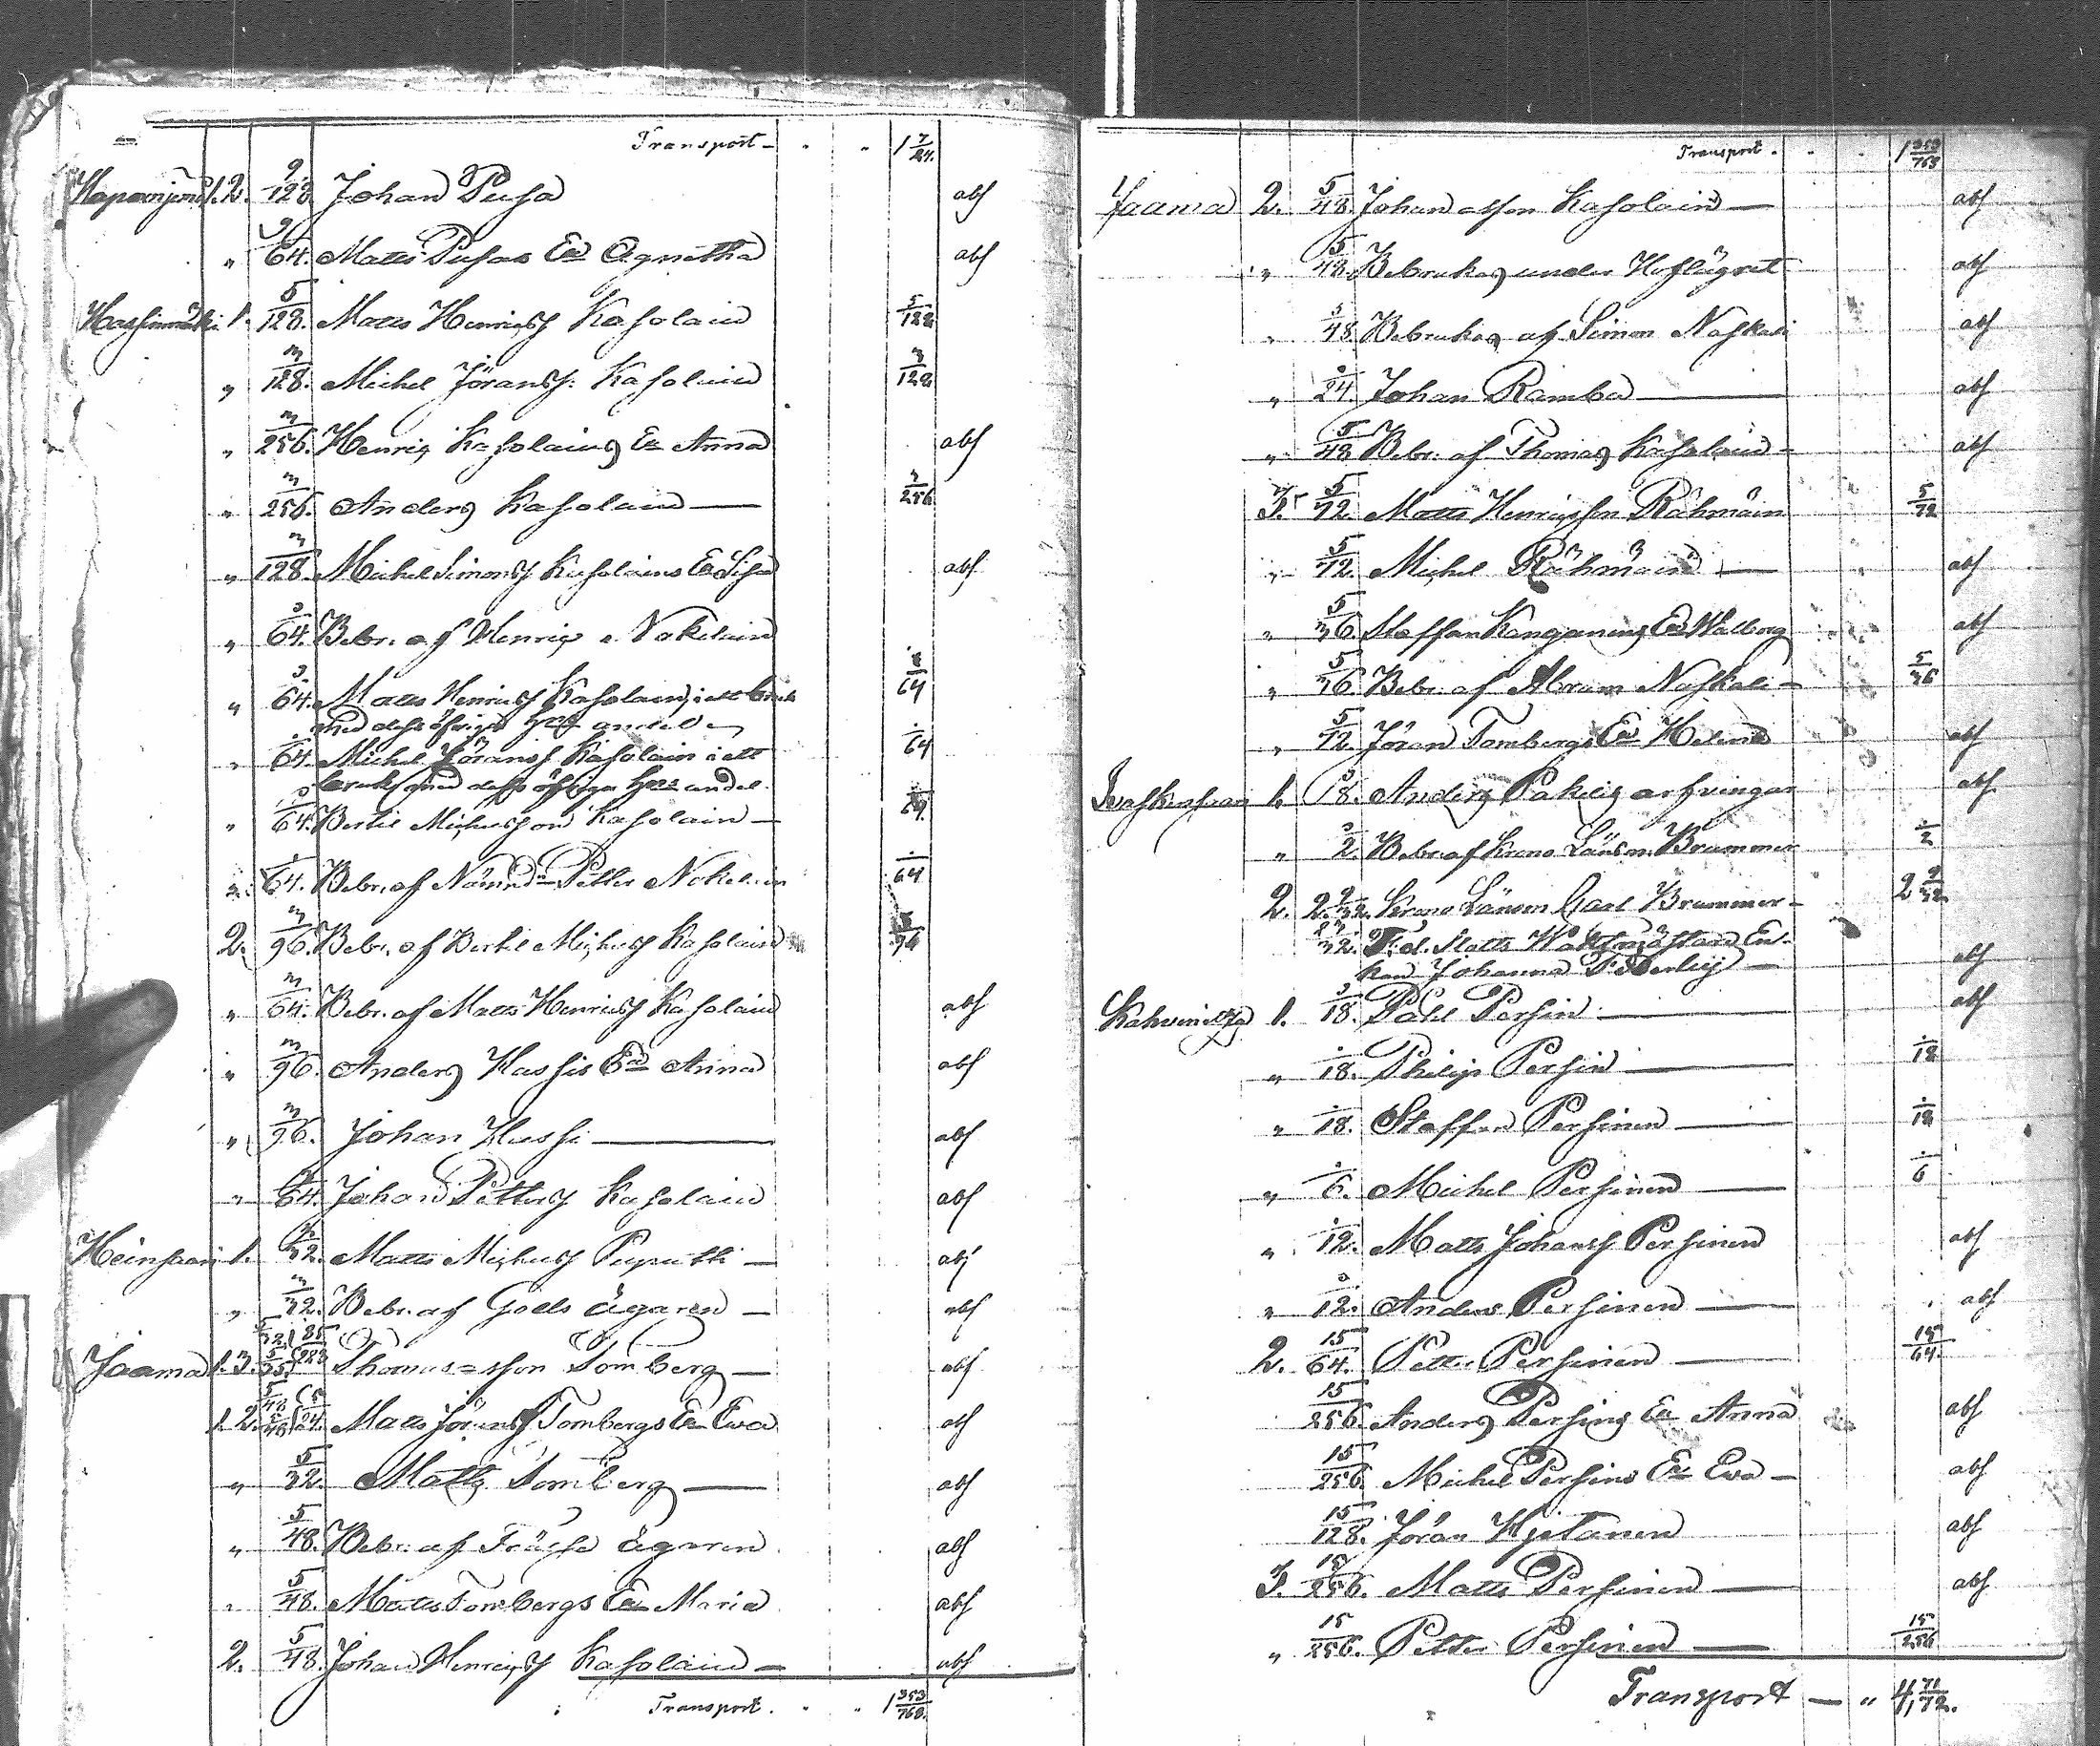 Transport - 1 7/24.
1.2. 9/128 Johan Pusa abs
" 9/64. Matts Pusas Ea Agnetha abs
1. 5/128. Matts Henrichss Kasolain 5/128
" 3/128. Michel Jöranss. Kasolain 3/128
" 3/256. Henric Kasolains Ea Anna abs
" 3/256. Anders Kasolain — 3/256
" 3/128. Michel Simonss Kasolains Ea Lisa abs
" 3/64. Bebr. af Henric Nokelain
" 3/64. Matts Henricss Kasolain, i ett bruk 3/64
med dess öfriga andel
" 64. Michel Jöranss Kasolain i ett 64
bruk med dess öfriga andel
" 64. Bertil Michelsson Kasolain — 64
" 64. Bebr. af Nämnd= Petter Nokelain 64
2. 3/96. Bebr. af Bertil Michelss Kasolain 3/96
" 3/64. Bebr. af Matts Henricss Kasolain abs
" 3/96. Anders Hassis Ea Anna abs
" 3/96. Johan Hassi — abs
" 64. Johan Petterss Kasolain abs
Heinsaari 1. 3/32. Matts Michelss Puputti — abs
" 3/32. Bebr. af Gods ägaren — abs
Jaama 1.3. Thomas =sson Tomberg — abs
1.2. 5/48 5/48 5/24. Matts Jöranss Tombergs Ea Ewa abs
" 5/32. Matts Tomberg — abs
" 5/48. Bebr. af Frälse ägaren abs
" 5/48. Matts Tombergs Ea Maria abs
2. 5/48. Johan Henricss Kasolain — abs
Transport. " 1 353/768.
Transport. 1 353/768
Jaama 2. 5/48. Johan =sson Kasolain — abs
" 5/48. Bebrukas under Hoflägret abs
" 5/48. Bebrukas af Simon Naskali abs
" 24. Johan Ramba — abs
" 5/48 Bebr. af Thomas Kasolain - abs
3. 5/72. Matts Henricsson Rähmäin 5/72
" 5/72. Michel Rähmäin — abs
" 5/36. Staffan Kanganens Ea Walborg abs
" 5/36. Bebr. af Abram Naskali - 5/36
" 5/12. Jöran Tombergs Ea Helena abs
1. 18. Anders Pakeis arfvingar abs
" 2. Bebr. af Krono Länsm. Brummer 2
2. 2 9/32. Krono Länsm Carl Brummer - 2 9/32
32. F. d. Slotts Waktmästare En-
kan Johanna abs
1. 18. Påhl Persin — abs
" 18. Philip Persin — 18
" 18. Staffan Persinen — 18
" 6. Michel Persinen — 6
" 12. Matts Johanss Persinen abs
" 12. Anders Persinen — abs
2. 15/64. Petter Persinen — 15/64.
15/256. Anders Persins Ea Anna abs
15/256. Michel Persins Ea Ewa - abs
15/128. Jöran Hjetanen abs
3. 15/256. Matts Persinen — abs
" 15/256. Petter Persinen — 15/256
Transport — " 4, 71/72.